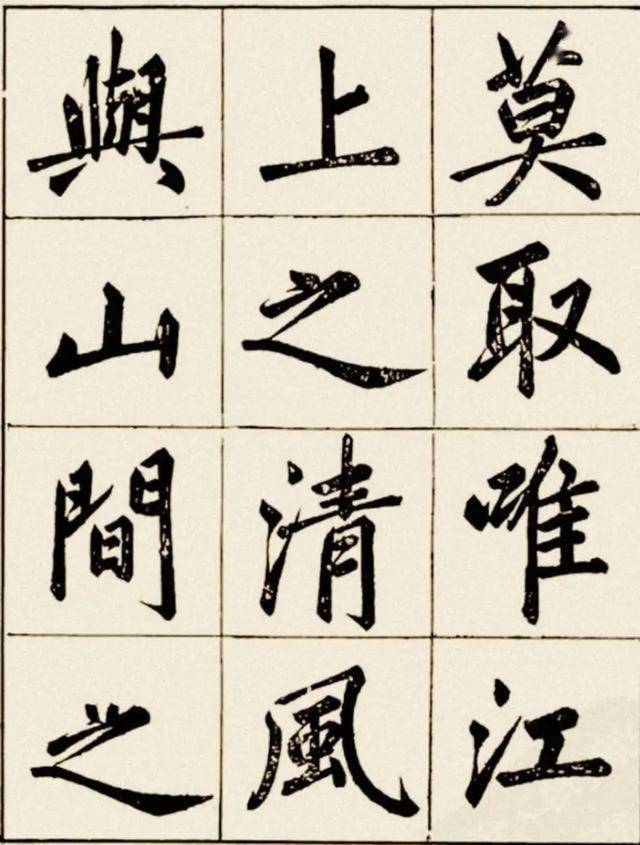 莫取唯江
上之清風
與山間之